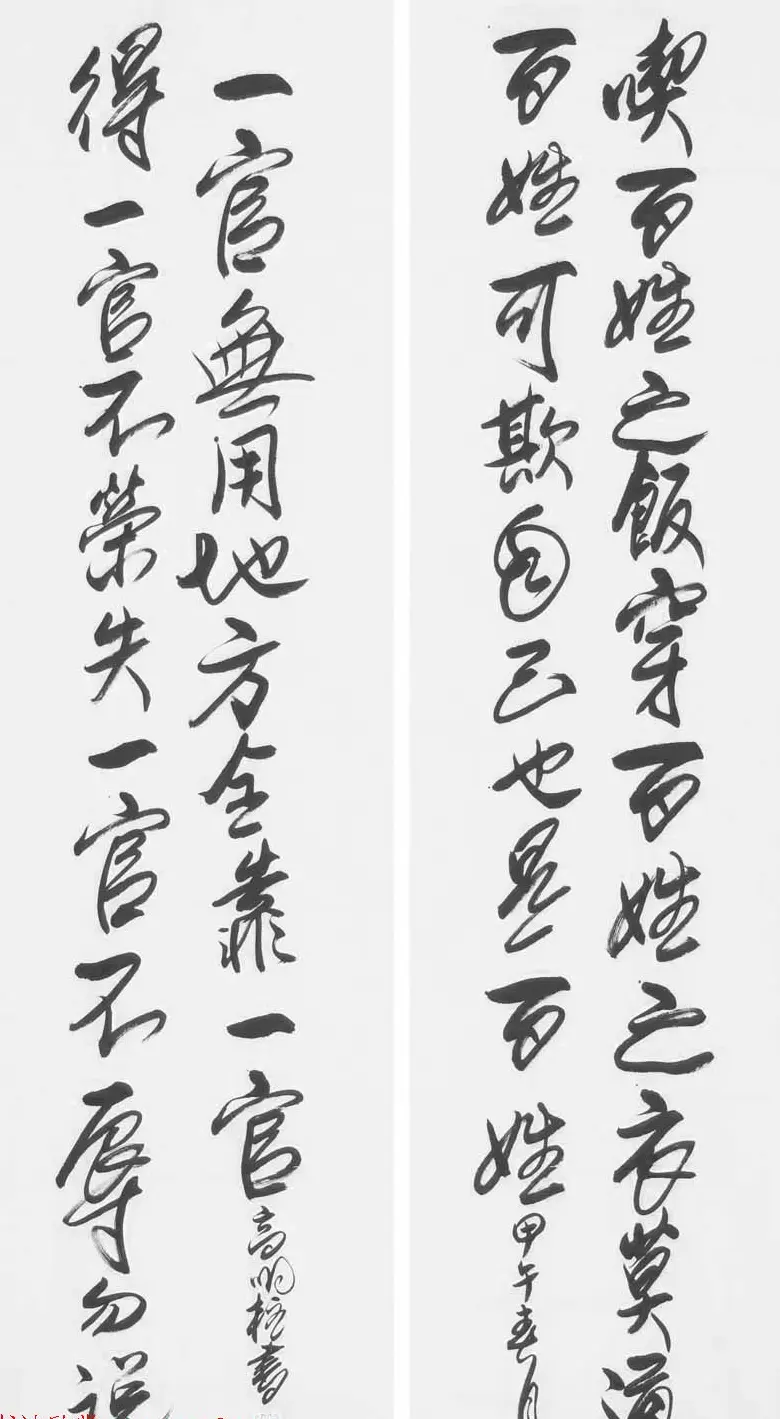 喫百姓之飯穿百姓之衣莫道
百姓可欺自己也是百姓
甲午春月
得一官不榮失一官不辱勿説
一官無用地方全靠一官
高明柱書